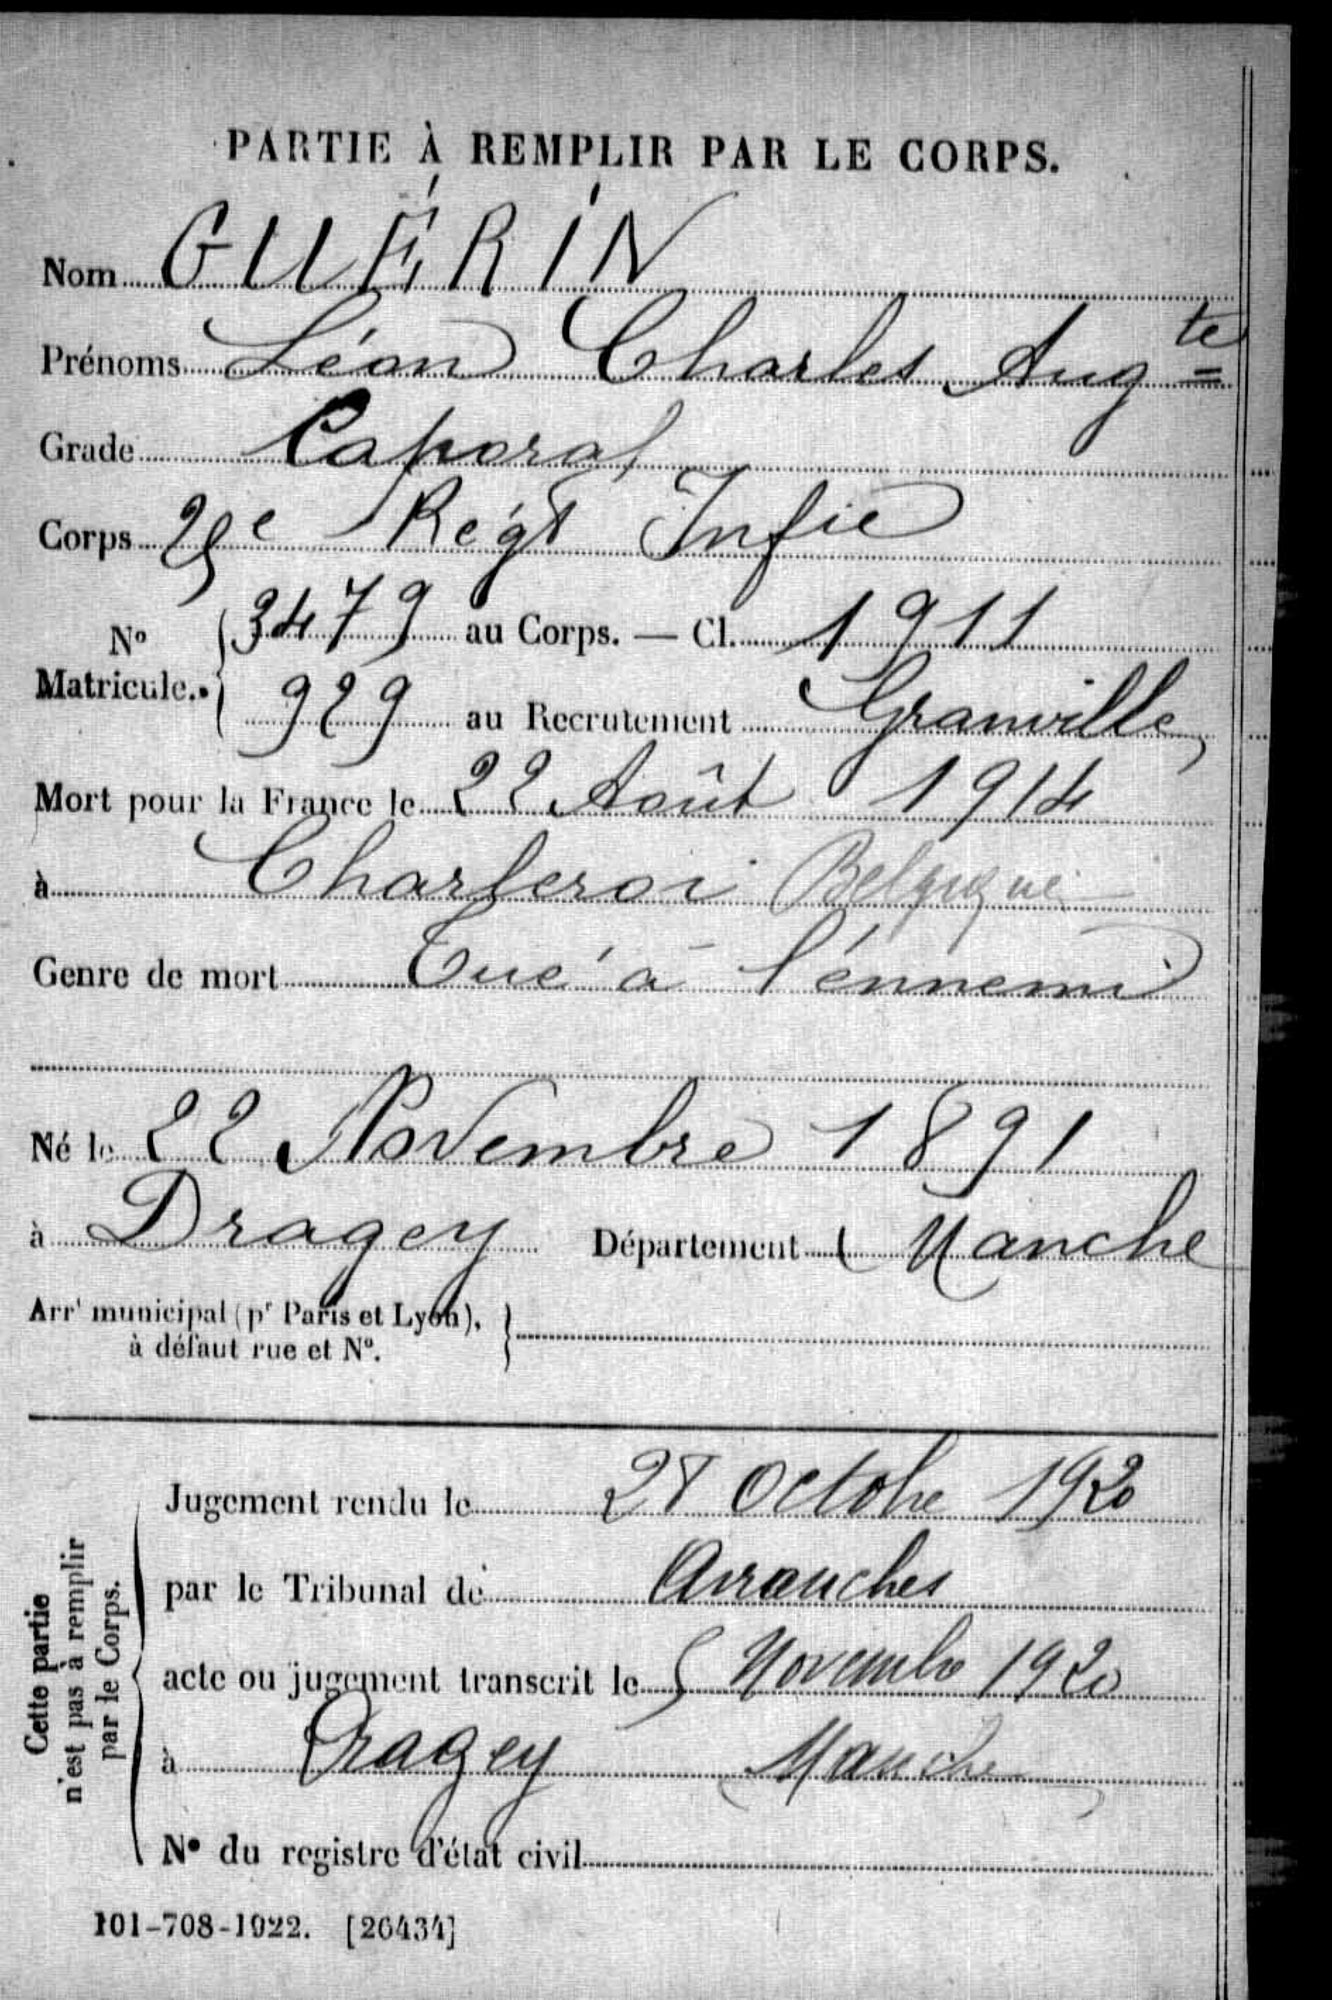 PARTIE À REMPLIR PAR LE CORPS.
Nom GUÉRIN
Prénoms Léon Charles Aug te
Grade Caporal
Corps 25e Régt Infie
No Matricule. 3479 au Corps. — Cl. 1911
929 au Recrutement Granville
Mort pour la France le 22 Août 1914
à Charleroi Belgique
Genre de mort Tué à l'énnemi
Né le 22 Novembre 1891
à Dragey Département Manche
Arrt municipal (pr Paris et Lyon),
à défaut rue et No.
Cette partie
n'est pas à remplir
par le Corps.
Jugement rendu le 28 Octobre 1920
par le Tribunal de Avranches
acte ou jugement transcrit le 5 Novembre 1920
à Dragey Manche
No du registre d'état civil
101-708-1922. [26434]